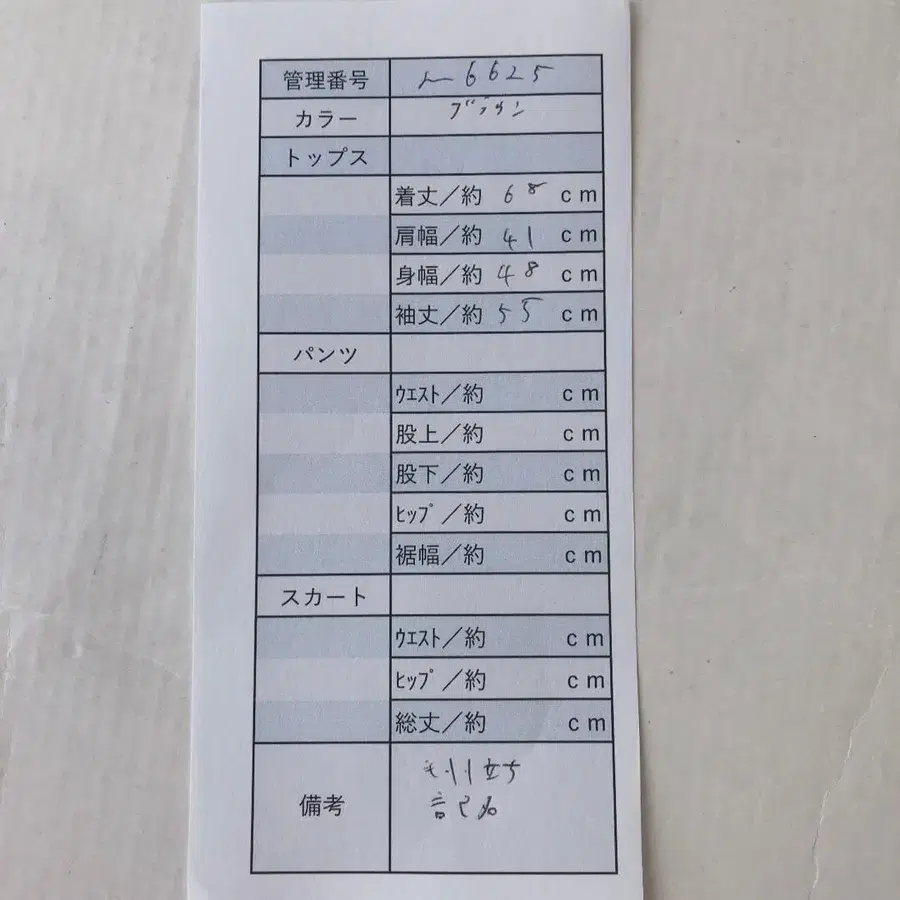 管理番号 6625
カラー ブラウン
トップス
着丈／約 68 cm
肩幅／約 41 cm
身幅／約 48 cm
袖丈／約 55 cm
パンツ
ｳｴｽﾄ／約 cm
股上／約 cm
股下／約 cm
ﾋｯﾌﾟ／約 cm
裾幅／約 cm
スカート
ｳｴｽﾄ／約 cm
ﾋｯﾌﾟ／約 cm
総丈／約 cm
備考
立ち
記名